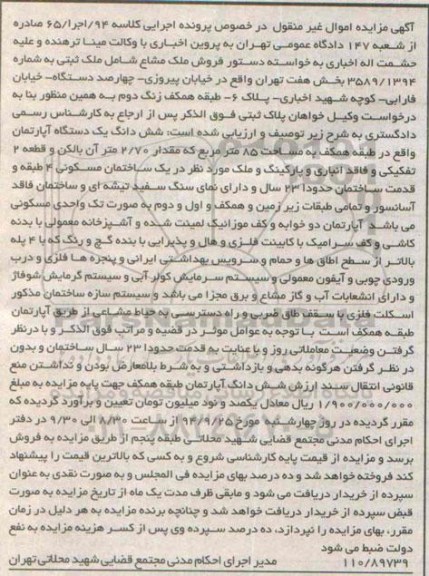 آگهی مزایده اموال غیر منقول در خصوص پرونده اجرایی کلاسه ۶۵/اجرا/۹۴ صادره
از شعبه ۱۴۷ دادگاه عمومی تهران به پروین اخباری با وکالت مینا ترهنده و علیه
حشمت اله اخباری به خواسته دستور فروش ملک مشاع شامل ملک ثبتی به شماره
۳۵۸۹/۱۳۹۴ بخش هفت تهران واقع در خیابان پیروزی- چهارصد دستگاه- خیابان
فارابی- کوچه شهید اخباری- پلاک ۶- طبقه همکف زنگ دوم به همین منظور بنا به
درخواست وکیل خواهان پلاک ثبتی فوق الذکر پس از ارجاع به کارشناس رسمی
دادگستری به شرح زیر توصیف و ارزیابی شده است: شش دانگ یک دستگاه آپارتمان
واقع در طبقه همکف به مساحت ۸۵ متر مربع که مقدار ۲/۷۰ متر آن بالکن و قطعه ۲
تفکیکی و فاقد انباری و پارکینگ و ملک مورد نظر در یک ساختمان مسکونی ۴ طبقه و
قدمت ساختمان حدودا ۲۳ سال و دارای نمای سنگ سفید تیشه ای و ساختمان فاقد
آسانسور و تمامی طبقات زیر زمین و همکف و اول و دوم به صورت تک واحدی مسکونی
می باشد آپارتمان دو خوابه و کف موزائیک لمینت شده و آشپزخانه معمولی با بدنه
کاشی و کف سرامیک با کابینت فلزی و هال و پذیرایی با بنده گچ و رنگ که با ۴ پله
بالاتر از سطح اطاق ها و حمام و سرویس بهداشتی ایرانی و پنجره ها فلزی و درب
ورودی چوبی و آیفون معمولی و سیستم سرمایش کولر آبی و سیستم گرمایش شوفاژ
و دارای انشعابات آب و گاز مشاع و برق مجزا می باشد و سیستم سازه ساختمان مذکور
اسکلت فلزی با سقف طاق ضربی و راه دسترسی به حیاط مشاعی از طریق آپارتمان
طبقه همکف است با توجه به عوامل موثر در قضیه و مراتب فوق الذکر و با درنظر
گرفتن وضعیت معاملاتی روز و با عنایت به قدمت حدودا ۲۳ سال ساختمان و بدون
در نظر گرفتن هرگونه بدهی و بازداشتی و به شرط بلامعارض بودن و نداشتن منع
قانونی انتقال سند ارزش شش دانگ آپارتمان طبقه همکف جهت پایه مزایده به مبلغ
۱/۹۰۰/۰۰۰/۰۰۰ ریال معادل یکصد و نود میلیون تومان تعیین و برآورد گردیده که
مقرر گردیده در روز چهارشنبه مورخ ۹۴/۹/۲۵ از ساعت ۸/۳۰ الی ۹/۳۰ در دفتر
اجرای احکام مدنی مجتمع قضایی شهید محلاتی طبقه پنجم از طریق مزایده به فروش
برسد و مزایده از قیمت پایه کارشناسی شروع و به کسی که بالاترین قیمت را پیشنهاد
کند فروخته خواهد شد و ده درصد بهای مزایده فی المجلس و به صورت نقدی به عنوان
سپرده از خریدار دریافت می شود و مابقی ظرف مدت یک ماه از تاریخ مزایده به صورت
قبض سپرده از خریدار دریافت خواهد شد و چنانچه برنده مزایده به هر دلیل در زمان
مقرر، بهای مزایده را نپردازد، ده درصد سپرده وی پس از کسر هزینه مزایده به نفع
دولت ضبط می شود
۱۱۰/۸۹۷۳۹ مدیر اجرای احکام مدنی مجتمع قضایی شهید محلاتی تهران